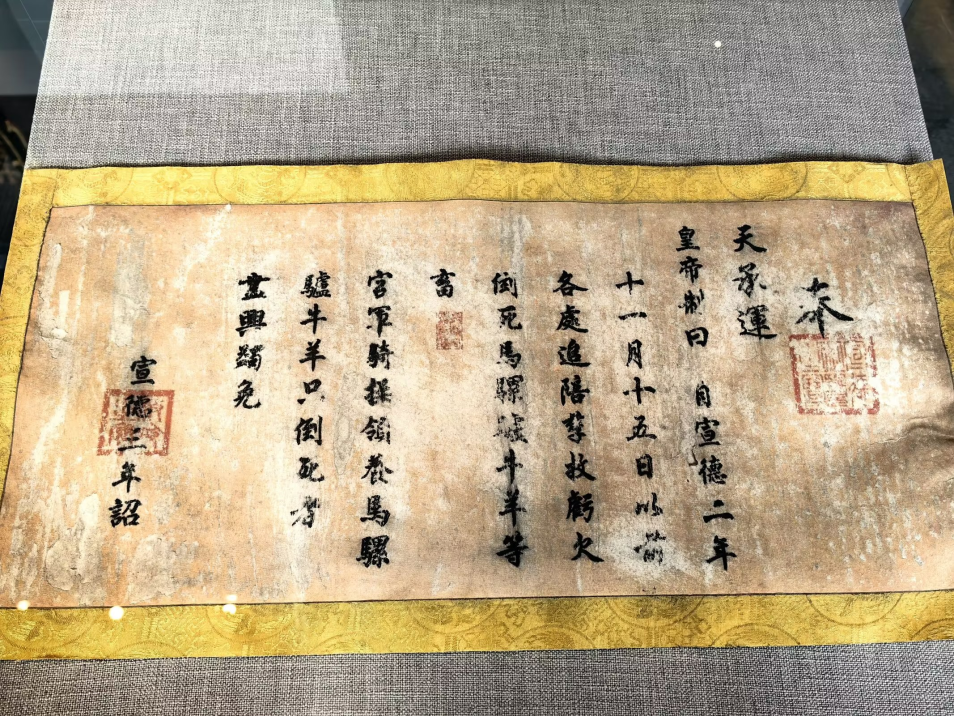 奉
天承運
皇帝制曰 自宣德二年
十一月十五日以前
各處追陪孳牧虧欠
倒死馬騾驢牛羊等
畜
官軍騎操領養馬騾
驢牛羊只倒死者
盡與蠲免
宣德三年詔